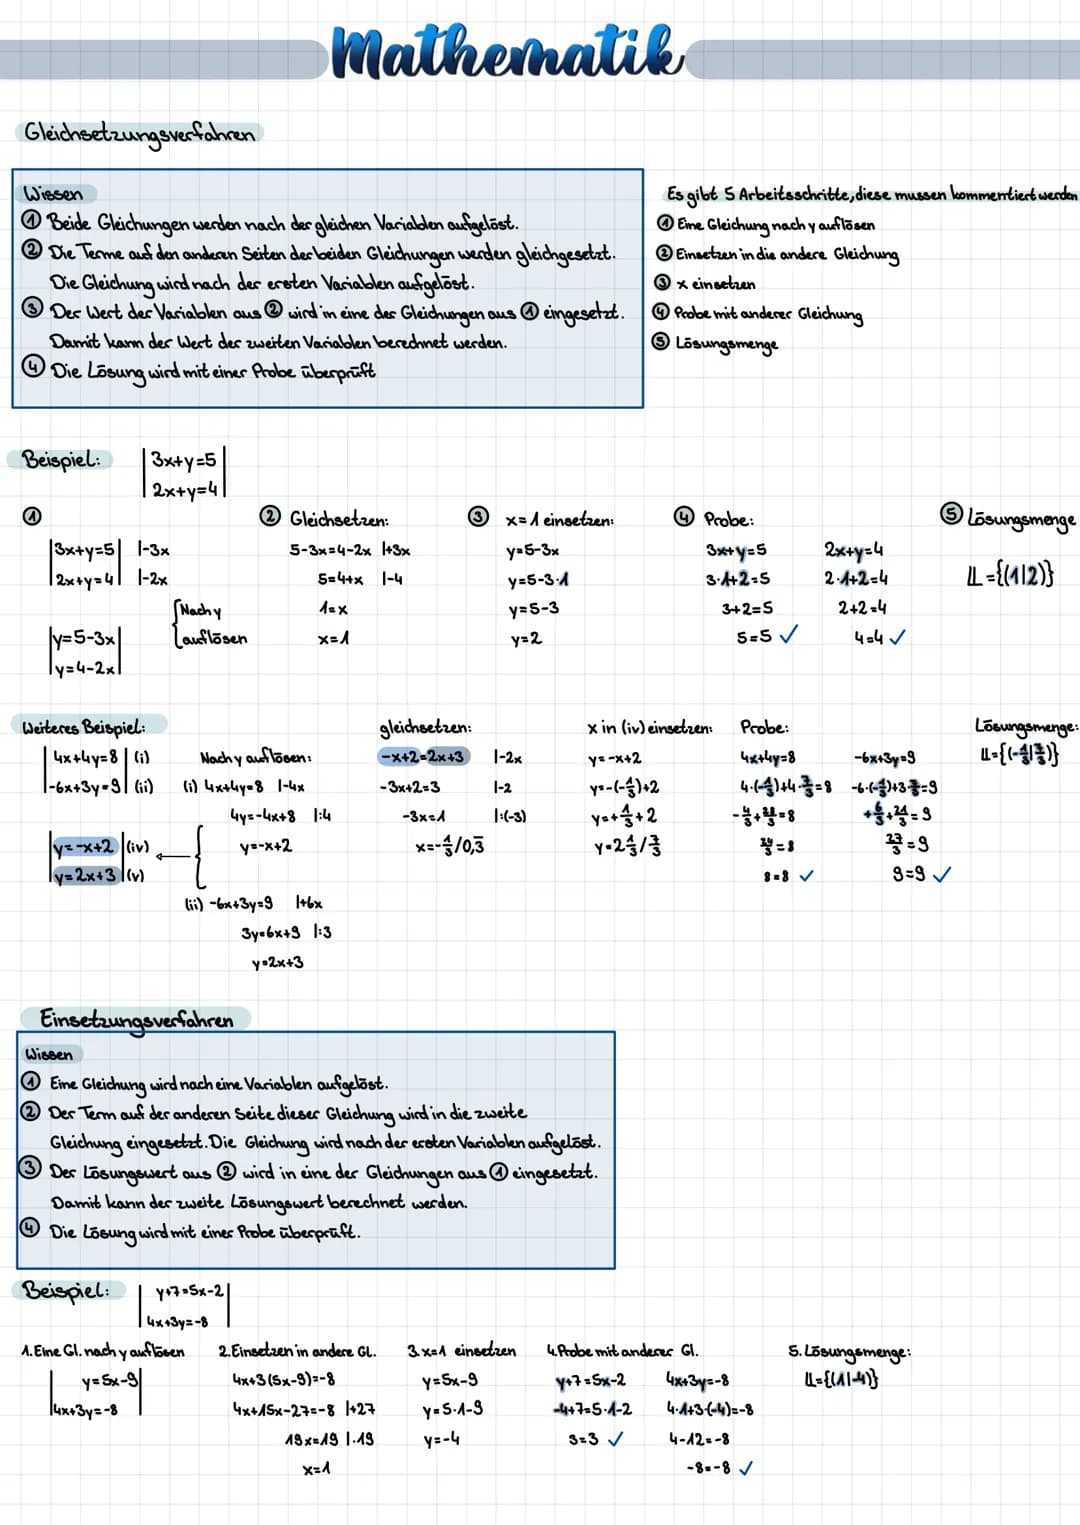 Mathematik
Gleichsetzungsverfahren
Wissen
① Beide Gleichungen werden nach der gleichen Variablen aufgelöst.
② Die Terme auf den anderen Seiten der beiden Gleichungen werden gleichgesetzt.
Die Gleichung wird nach der ersten Variablen aufgelöst.
③ Der Wert der Variablen aus ② wird in eine der Gleichungen aus ① eingesetzt.
Damit kann der Wert der zweiten Variablen berechnet werden.
④ Die Lösung wird mit einer Probe überprüft
Es gibt 5 Arbeitsschritte, diese mussen kommentiert werden
① Eine Gleichung nach y auflösen
② Einsetzen in die andere Gleichung
③ x einsetzen
④ Probe mit anderer Gleichung
⑤ Lösungsmenge
Beispiel:
|3x+y=5|
|2x+y=4|
①
|3x+y=5| |-3x
|2x+y=4| |-2x
{Nach y
auflösen
|y=5-3x|
|y=4-2x|
② Gleichsetzen:
5-3x=4-2x |+3x
5=4+x |-4
1=x
x=1
③ x=1 einsetzen:
y=5-3x
y=5-3·1
y=5-3
y=2
④ Probe:
3x+y=5
3·1+2=5
3+2=5
5=5 ✓
2x+y=4
2·1+2=4
2+2=4
4=4 ✓
⑤ Lösungsmenge
𝕃={(1|2)}
Weiteres Beispiel:
|4x+4y=8| (i)
|-6x+3y=9| (ii)
|y=-x+2| (iv)
|y=2x+3| (v)
Nach y auflösen:
(i) 4x+4y=8 |-4x
4y=-4x+8 |:4
y=-x+2
(ii) -6x+3y=9 |+6x
3y=6x+9 |:3
y=2x+3
gleichsetzen:
-x+2=2x+3 |-2x
-3x+2=3 |-2
-3x=1 |:(-3)
x=-1/3/0,3̅
x in (iv) einsetzen:
y=-x+2
y=-(-1/3)+2
y=+1/3+2
y=2 1/3/7/3
Probe:
4x+4y=8
4·(-1/3)+4·7/3=8
-4/3+28/3=8
24/3=8
8=8 ✓
-6x+3y=9
-6·(-1/3)+3·7/3=9
+6/3+21/3=9
27/3=9
9=9 ✓
Lösungsmenge:
𝕃={(-1/3|7/3)}
Einsetzungsverfahren
Wissen
① Eine Gleichung wird nach eine Variablen aufgelöst.
② Der Term auf der anderen Seite dieser Gleichung wird in die zweite
Gleichung eingesetzt. Die Gleichung wird nach der ersten Variablen aufgelöst.
③ Der Lösungswert aus ② wird in eine der Gleichungen aus ① eingesetzt.
Damit kann der zweite Lösungswert berechnet werden.
④ Die Lösung wird mit einer Probe überprüft.
Beispiel:
|y+7=5x-2|
|4x+3y=-8
1. Eine Gl. nach y auflösen
|y=5x-9|
|4x+3y=-8|
2. Einsetzen in andere GL.
4x+3(5x-9)=-8
4x+15x-27=-8 |+27
19x=19 |·19
x=1
3. x=1 einsetzen
y=5x-9
y=5·1-9
y=-4
4. Probe mit anderer Gl.
y+7=5x-2
-4+7=5·1-2
3=3 ✓
4x+3y=-8
4·1+3·(-4)=-8
4-12=-8
-8=-8 ✓
5. Lösungsmenge:
𝕃={(1|-4)}